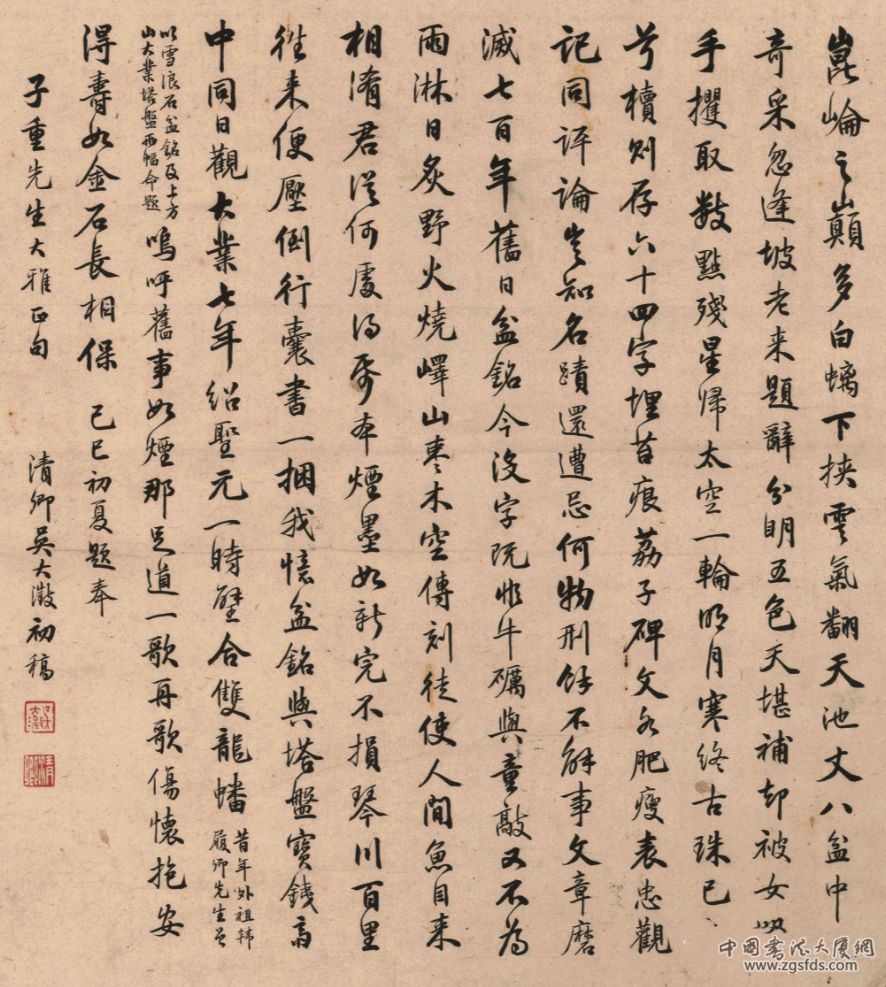 崑崙之巔多白螭下挾雲氣翻天池丈八盆中
奇采忽逢坡老来題辭分明五色天堪補却被女
手攫取數點殘星歸太空一輪明月寒終古珠已
兮櫝則存六十四字埋苔痕荔子碑文各肥瘦表忠觀
記同評論豈知名蹟還遭忌何物刑餘不解事文章磨
滅七百年舊日盆銘今沒字既非牛礪與童敲又不為
雨淋日炙野火燒嶧山棗木空傳刻徒使人間魚目来
相淆君從何處得本煙墨如新完不損琴川百里
往来便壓倒行囊書一捆我懷盆銘與塔盤寶鐵齋
中同日觀大業七年紹聖元一時壁合雙龍蟠昔年外祖韓
履卿先生曾
以雪浪石盆銘及上方
山大業塔盤兩幅命題嗚呼舊事如煙那足道一歌再歌傷懷抱安
得壽如金石長相保己巳初夏題奉
子重先生大雅正句清卿吳大澂初稿
中國書法大廈網
www.zgsfds.com